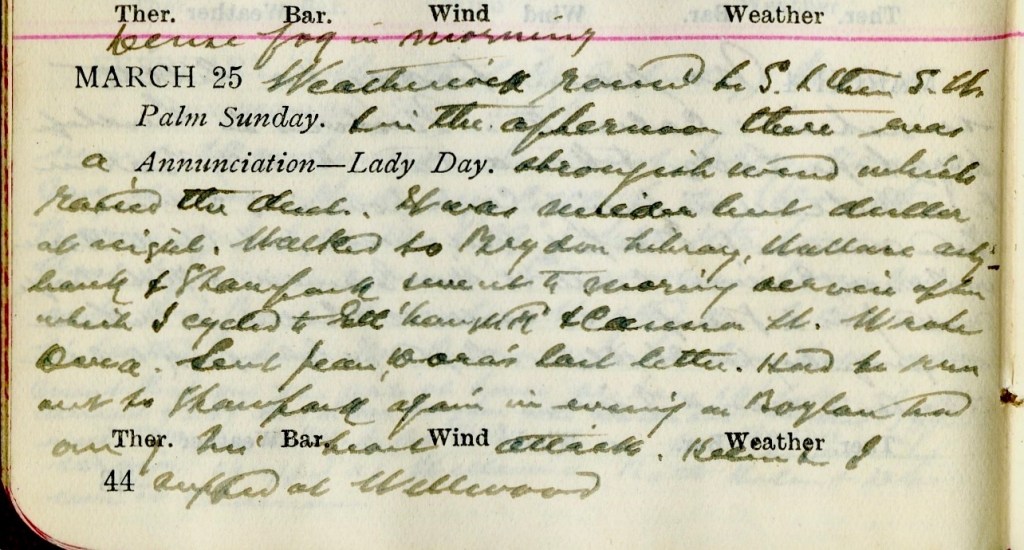 Ther. Bar. Wind Weather
Dense fog in morning
MARCH 25 Weathercock round to S. & then S.W.
Palm Sunday. & in the afternoon there was
a Annunciation—Lady Day. strongish wind which
raised the dust. It was milder but duller
at night. Walked to Brydon Library, Wallace
bank & Shawpark went to morning service after
which I cycled to & St. Wrote
Dora. Sent Jean, Dora's last letter. Had to run
out to Shawpark again in evening as Boylan had
one of his heart attacks. & I
Ther. Bar. Wind Weather
44 supped at Wellwood